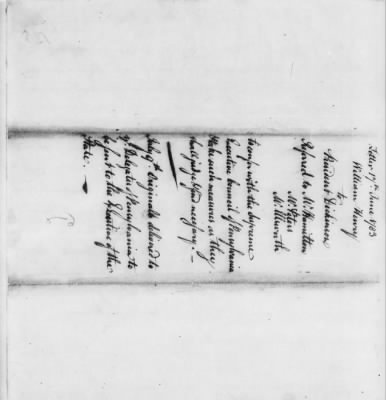 Letter 17th June 1783
William Henry
to
President Dickinson
Referred to Mr Hamilton
Mr Peters
Mr Elsworth
to confer with the Supreme
Executive Council of Pennsylvania
& take such measures as they
shall judge necessary.
July 9th Originals delivered to
the Delegates of Pennsylvania to
be sent to the Executive of the
State.